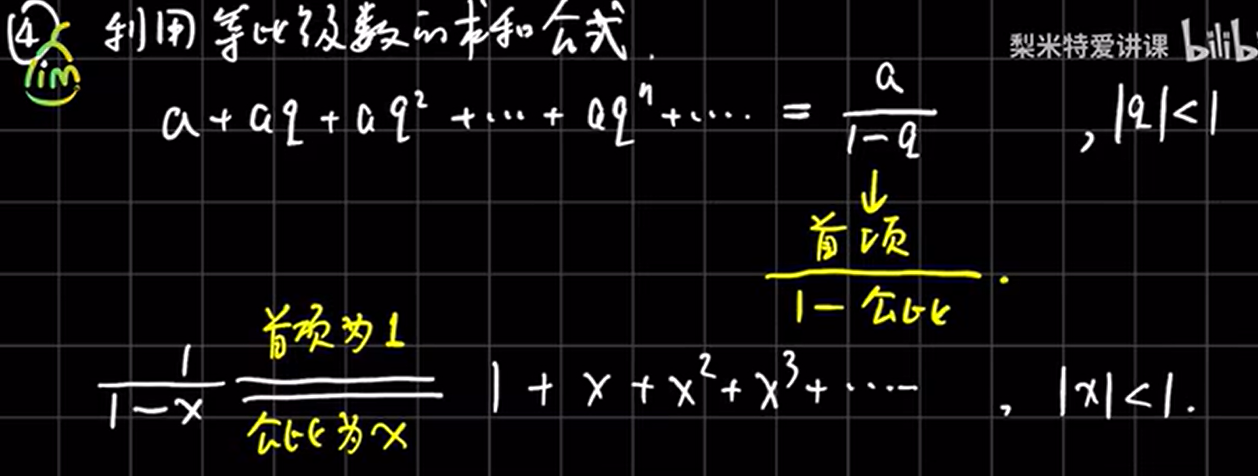 ④ 利用等比级数的求和公式.
梨米特爱讲课 bilib
lim
a + aq + aq² + ⋯ + aqⁿ + ⋯ = a/(1-q) , |q|<1
↓
首项/(1-公比) .
1/(1-x) = 首项为1 公比为x 1 + x + x² + x³ + ⋯ , |x|<1.